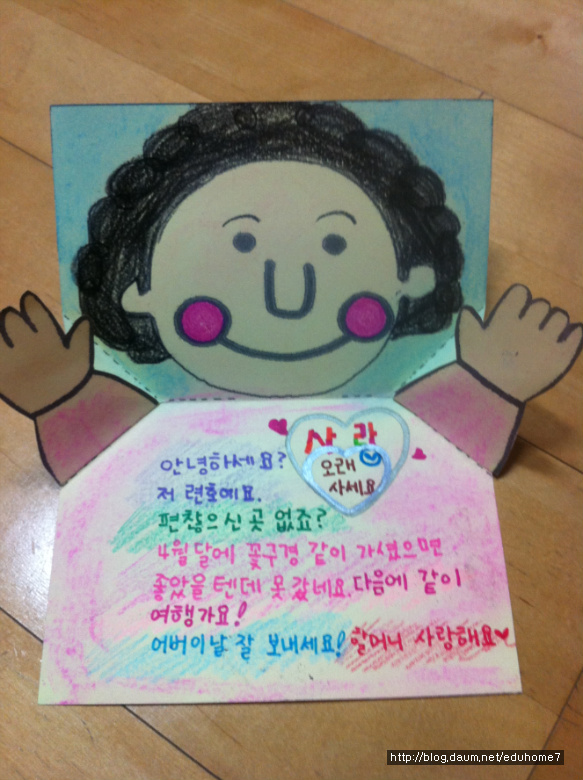 사랑
오래
사세요
안녕하세요?
저 련호예요.
편찮으신 곳 없죠?
4월달에 꽃구경 같이 가셨으면
좋았을텐데 못 갔네요. 다음에 같이
여행가요!
어버이날 잘 보내세요! 할머니 사랑해요♥
http://blog.daum.net/eduhome7